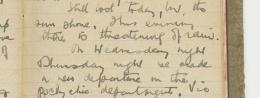 Still cool today, but the
sun shone. This evening
there is threatening of rain.
On Wednesday night
Thursday night we made
a new departure in the
psychic department. Vio